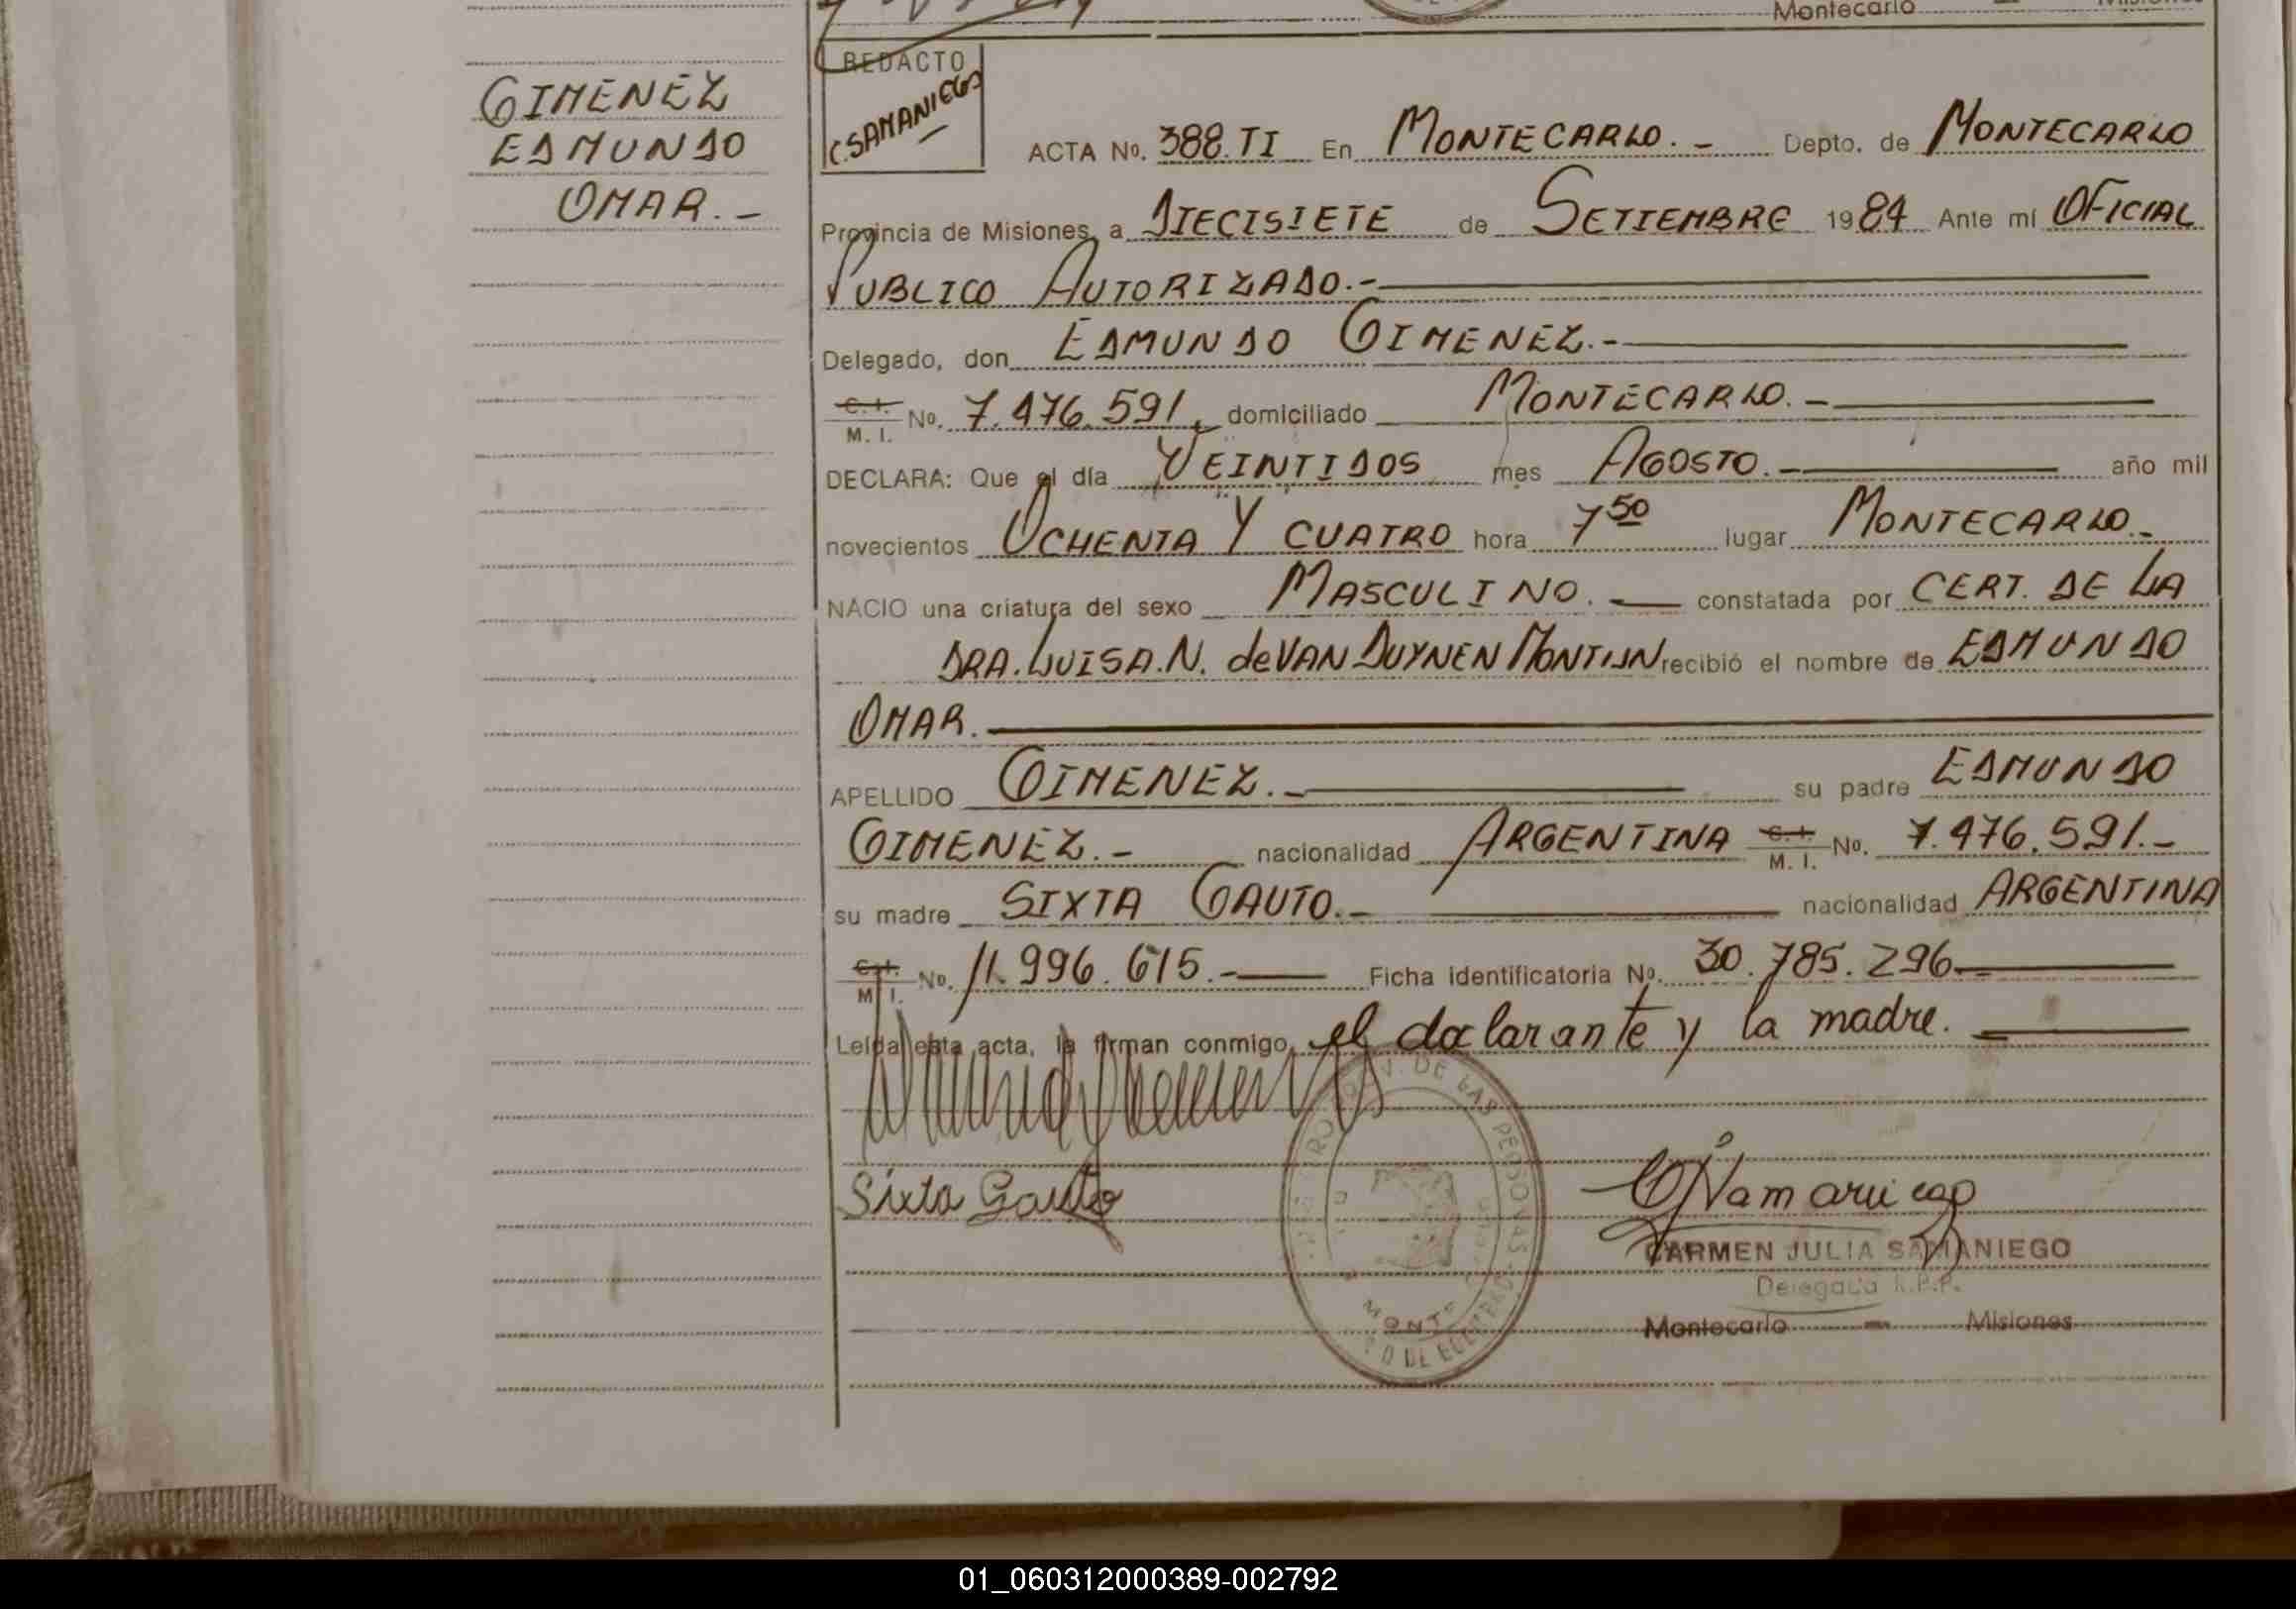 Montecarlo
GIMENEZ
EDMUNDO
OMAR.-
REDACTO
C.SAMANIEGO
ACTA No. 388.TI En MONTECARLO.- Depto. de MONTECARLO
Provincia de Misiones, a DIECISIETE de SETIEMBRE 1984 Ante mí OFICIAL
PUBLICO AUTORIZADO.-
Delegado, don EDMUNDO GIMENEZ.-
C. I. M. I. No. 7.476.591, domiciliado MONTECARLO.-
DECLARA: Que el día VEINTIDOS mes AGOSTO.- año mil
novecientos OCHENTA Y CUATRO hora 7 50 lugar MONTECARLO.-
NACIO una criatura del sexo MASCULINO.- constatada por CERT. DE LA
DRA. LUISA.N. de VAN DUYNEN MONTIJN recibió el nombre de EDMUNDO
OMAR.
APELLIDO GIMENEZ.- su padre EDMUNDO
GIMENEZ.- nacionalidad ARGENTINA C. I. M. I. No. 7.476.591.-
su madre SIXTA GAUTO.- nacionalidad ARGENTINA
C. I. M. I. No. 11.996.615.- Ficha identificatoria No. 30.785.296
Leída esta acta, la firman conmigo, el declarante y la madre.
Sixta Gauto
CJSamaniego
CARMEN JULIA SAMANIEGO
Delegada R.P.P.
Montecarlo - Misiones
01_060312000389-002792